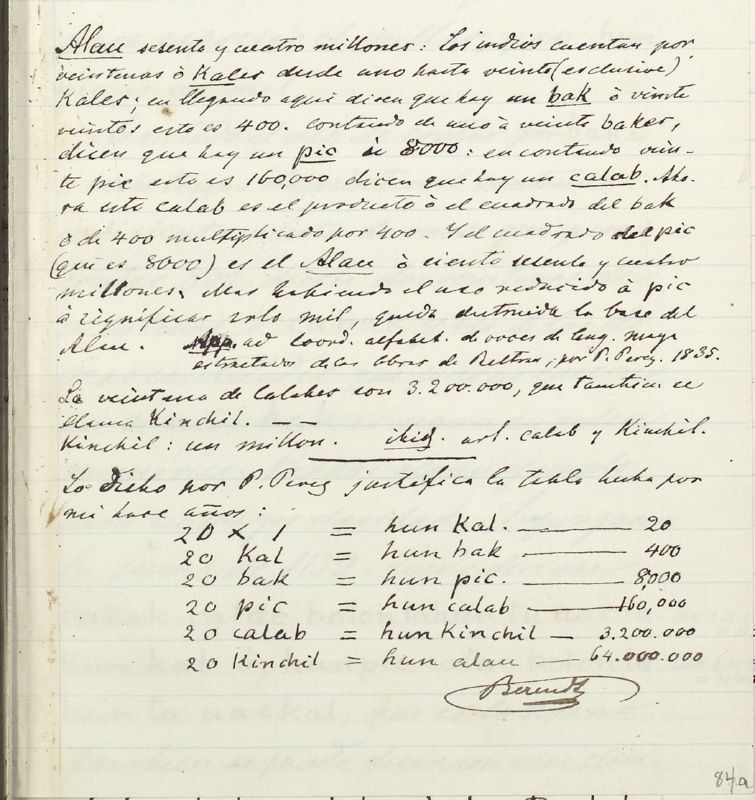 Alau sesenta y cuatro millones: Los indios cuentan por
veintenas ò Kales desde uno hasta veinte (exclusive)
Kales; en llegando aqui dicen que hay un bak ò veinte
veintes esto es 400. contando de uno à veinte bakes,
dicen que hay un pic ò 8000: en contando vein-
te pic esto es 160,000 dicen que hay un calab. Aho-
ra este calab es el producto ò el cuadrado del bak
ò de 400 multiplicado por 400. Y el cuadrado del pic
(que es 8000) es el Alau ò ciento sesenta y cuatro
millones. Mas habiendo el uso reducido à pic
à significar solo mil, queda destruida la base del
Alau. App. ad Coord. alfabet. de voces de leng. maya
estractadas de las obras de Beltran, por P. Perez. 1835.
La veintena de Calabes son 3.200.000, que tambien se
llama Kinchil. — —
Kinchil: un millon. ibid. art. calab y Kinchil.
Lo dicho por P. Perez justifica la tabla hecha por
mi hace años:
20 x 1 = hun Kal. — 20
20 Kal = hun bak — 400
20 bak = hun pic. — 8,000
20 pic = hun calab — 160,000
20 calab = hun Kinchil — 3.200.000
20 Kinchil = hun alau — 64.000.000
Berendt
84a